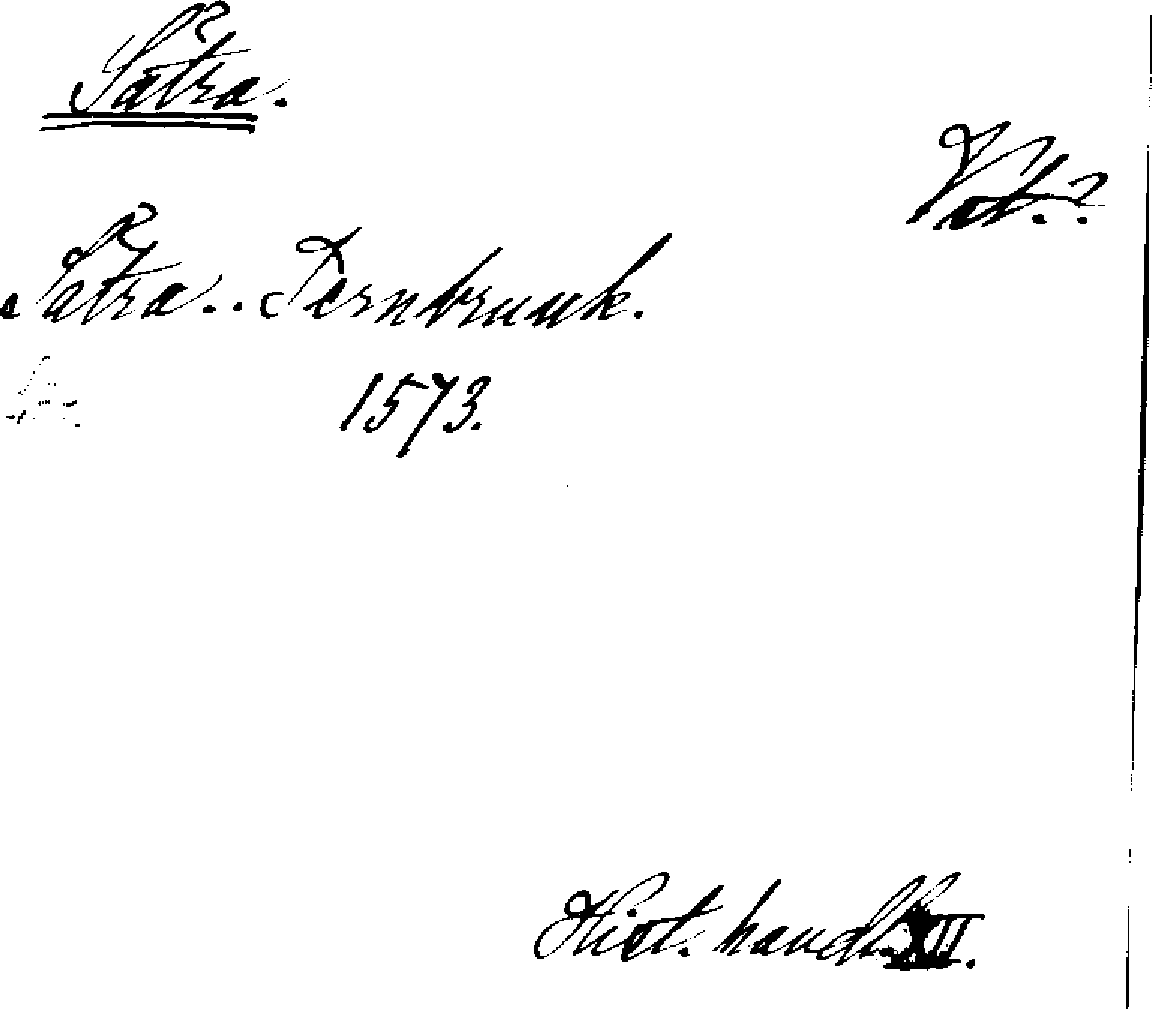 Sätra.
Vot.?
Sätra.. Jernbruuk.
1573.
Hist. handl. XII.